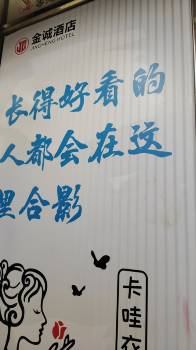 金诚酒店
JINCHENG HOTEL
长得好看的
人都会在这
里合影
卡哇